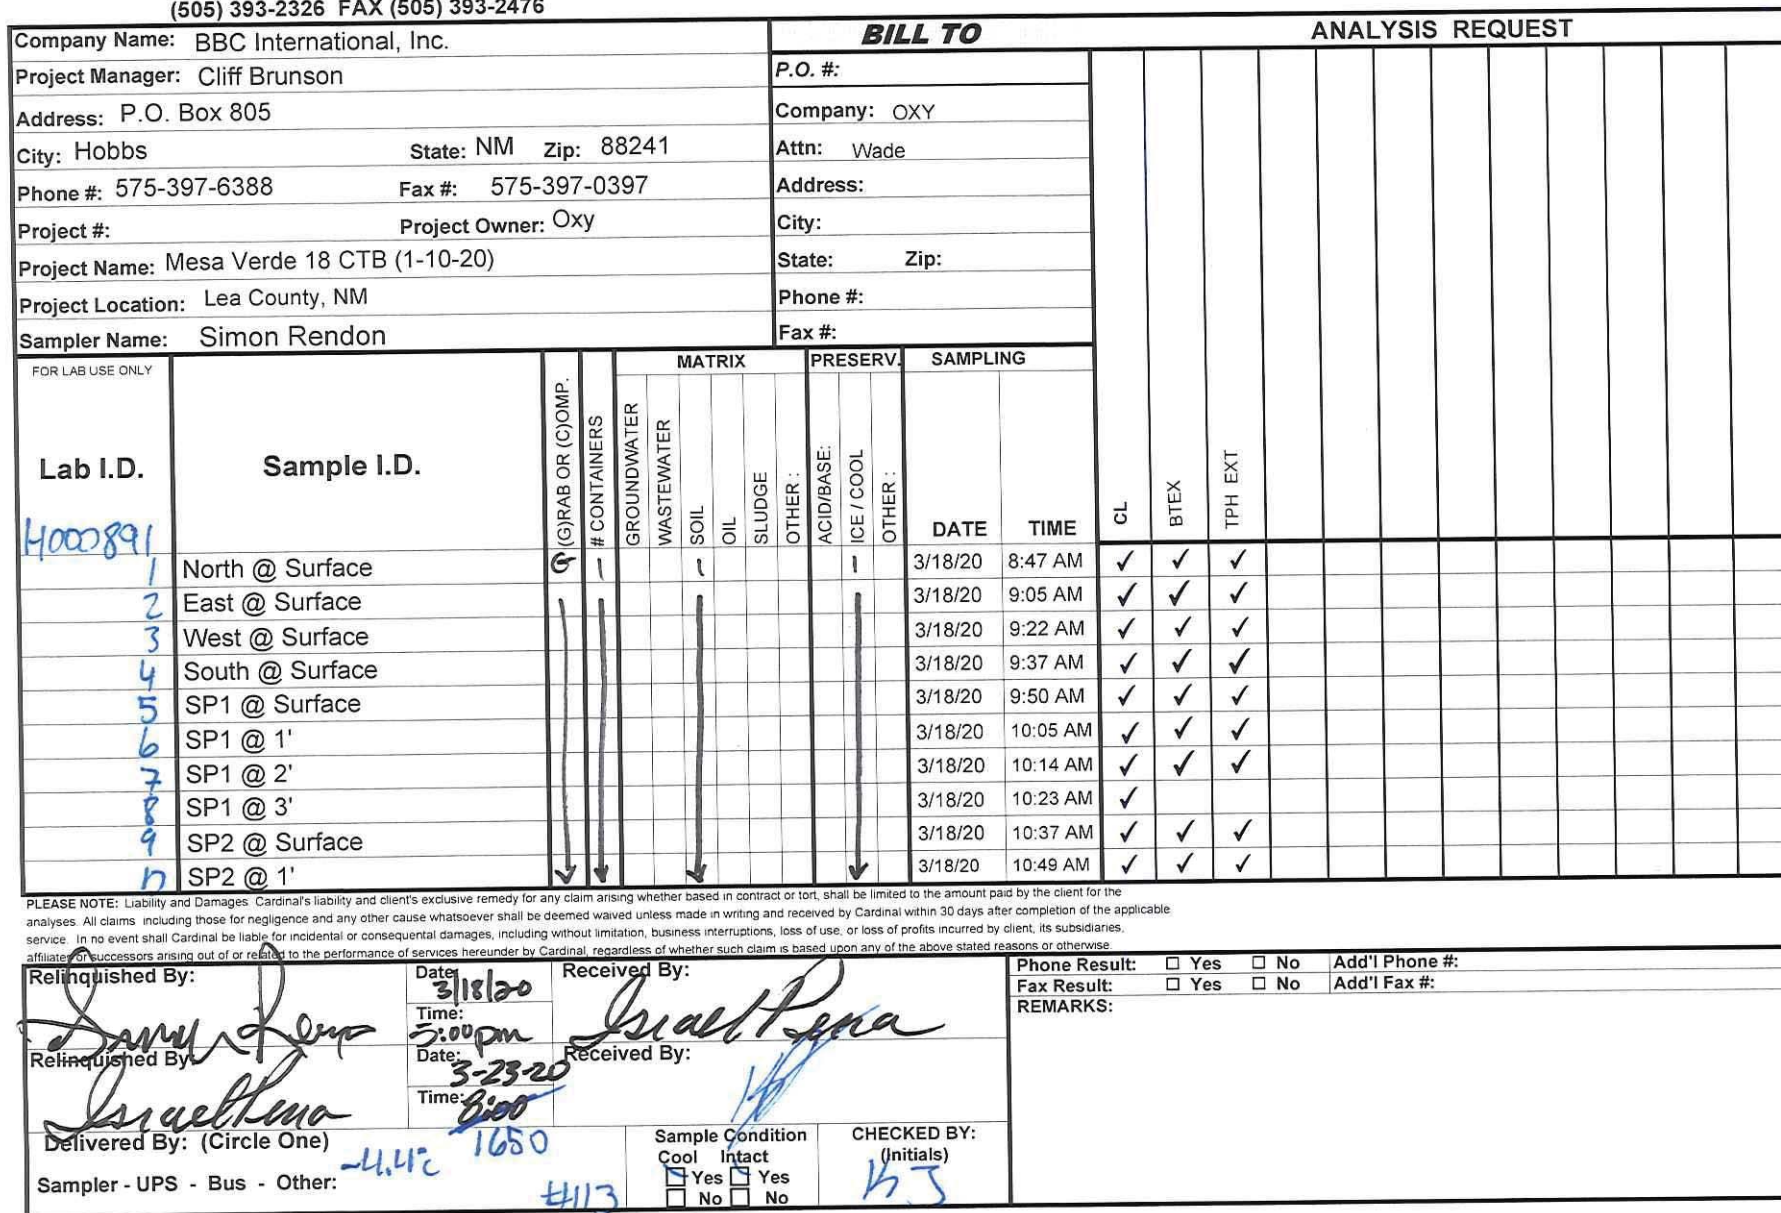 (505) 393-2326 FAX (505) 393-2476
Company Name: BBC International, Inc.
BILL TO
ANALYSIS REQUEST
Project Manager: Cliff Brunson
P.O. #:
Address: P.O. Box 805
Company: OXY
City: Hobbs State: NM Zip: 88241
Attn: Wade
Phone #: 575-397-6388 Fax #: 575-397-0397
Address:
Project #: Project Owner: Oxy
City:
Project Name: Mesa Verde 18 CTB (1-10-20)
State: Zip:
Project Location: Lea County, NM
Phone #:
Sampler Name: Simon Rendon
Fax #:
FOR LAB USE ONLY
MATRIX PRESERV. SAMPLING
Lab I.D. Sample I.D. (G)RAB OR (C)OMP. # CONTAINERS GROUNDWATER WASTEWATER SOIL OIL SLUDGE OTHER : ACID/BASE: ICE / COOL OTHER : DATE TIME CL BTEX TPH EXT
H000891
1 North @ Surface G 1 1 1 3/18/20 8:47 AM ✓ ✓ ✓
2 East @ Surface 3/18/20 9:05 AM ✓ ✓ ✓
3 West @ Surface 3/18/20 9:22 AM ✓ ✓ ✓
4 South @ Surface 3/18/20 9:37 AM ✓ ✓ ✓
5 SP1 @ Surface 3/18/20 9:50 AM ✓ ✓ ✓
6 SP1 @ 1' 3/18/20 10:05 AM ✓ ✓ ✓
7 SP1 @ 2' 3/18/20 10:14 AM ✓ ✓ ✓
8 SP1 @ 3' 3/18/20 10:23 AM ✓
9 SP2 @ Surface 3/18/20 10:37 AM ✓ ✓ ✓
10 SP2 @ 1' 3/18/20 10:49 AM ✓ ✓ ✓
PLEASE NOTE: Liability and Damages. Cardinal's liability and client's exclusive remedy for any claim arising whether based in contract or tort, shall be limited to the amount paid by the client for the
analyses. All claims including those for negligence and any other cause whatsoever shall be deemed waived unless made in writing and received by Cardinal within 30 days after completion of the applicable
service. In no event shall Cardinal be liable for incidental or consequental damages, including without limitation, business interruptions, loss of use, or loss of profits incurred by client, its subsidiaries,
affiliates or successors arising out of or related to the performance of services hereunder by Cardinal, regardless of whether such claim is based upon any of the above stated reasons or otherwise.
Relinquished By:
Date: 3/18/20
Time: 5:00pm
Received By:
Israel Pena
Phone Result: Yes No Add'l Phone #:
Fax Result: Yes No Add'l Fax #:
REMARKS:
Relinquished By:
Israel Pena
Date: 3-23-20
Time: 8:00
1650
Received By:
Delivered By: (Circle One)
-4.4°c
Sampler - UPS - Bus - Other:
#113
Sample Condition
Cool Intact
Yes Yes
No No
CHECKED BY:
(Initials)